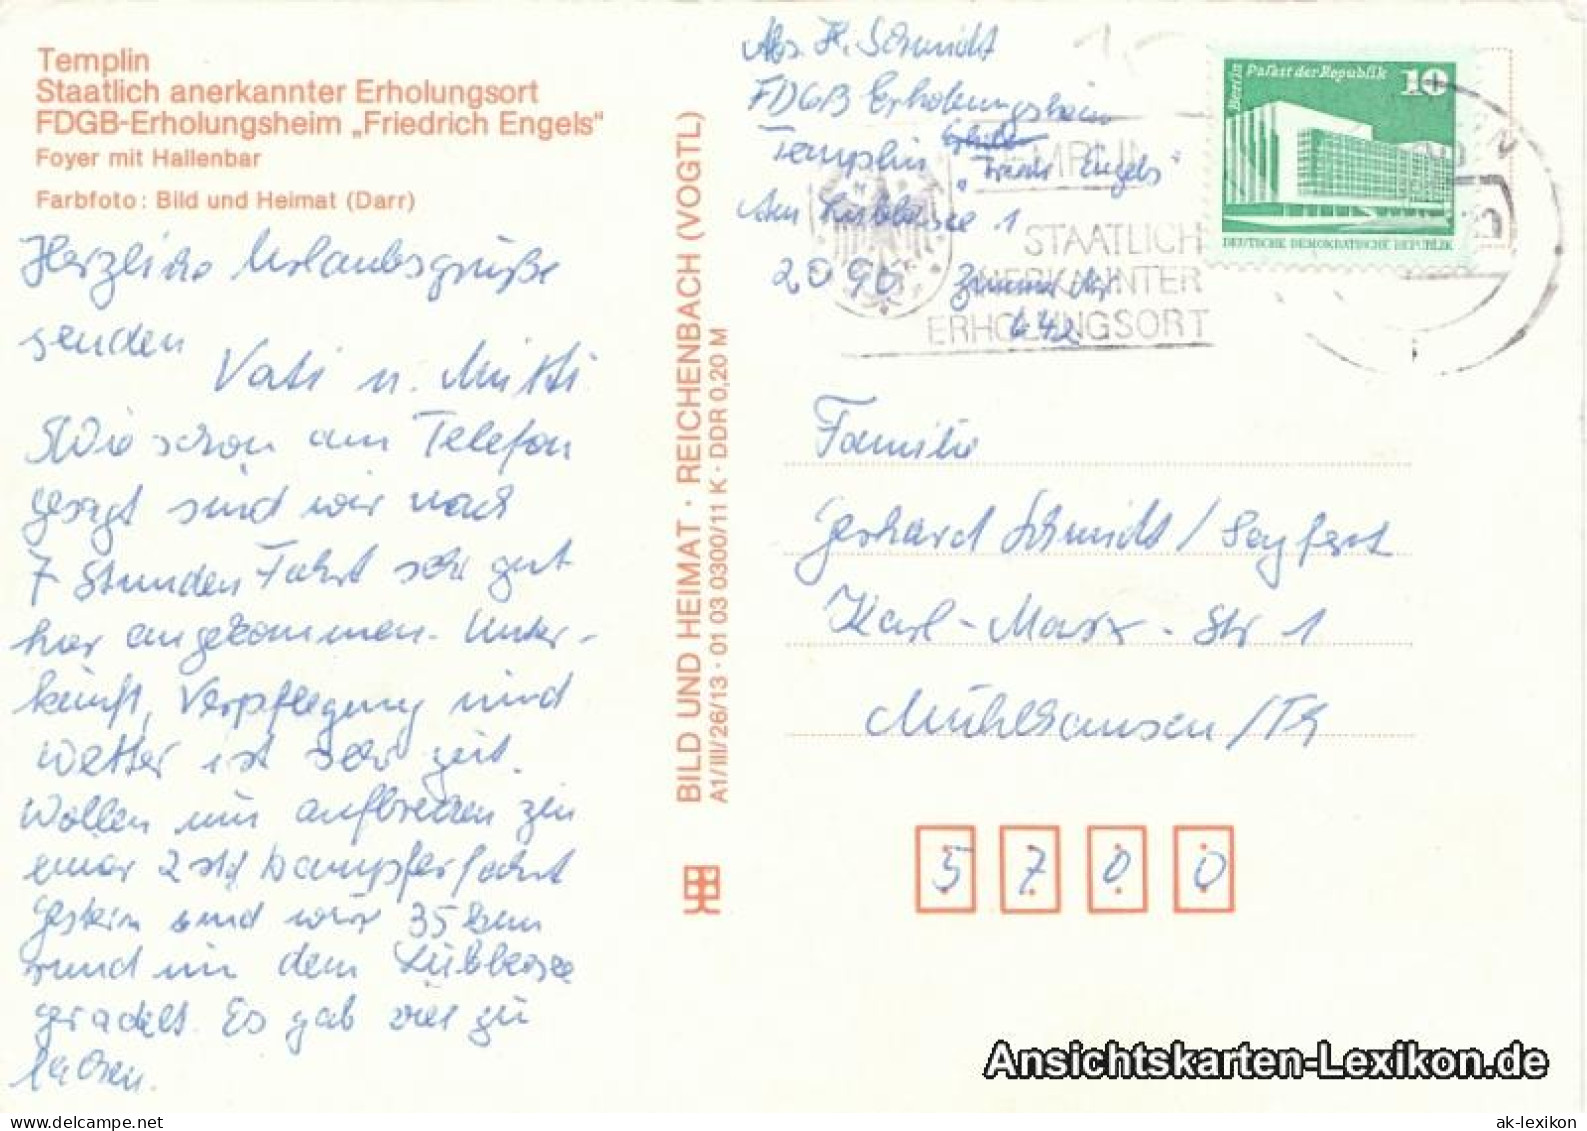 Templin
Staatlich anerkannter Erholungsort
FDGB-Erholungsheim „Friedrich Engels"
Foyer mit Hallenbar
Farbfoto: Bild und Heimat (Darr)
Herzliche Urlaubsgrüße
senden
Vati u. Mutti
Wie schon am Telefon
gesagt sind wir nach
7 Stunden Fahrt sehr gut
hier angekommen. Unter-
kunft, Verpflegung und
Wetter ist sehr gut.
Wollen nun aufbrechen zu
einer 2 std Dampferfahrt
Gestern sind wir 35 km
rund um den Lübbesee
geradelt. Es gab viel zu
lachen.
BILD UND HEIMAT · REICHENBACH (VOGTL)
A1/III/26/13 · 01 03 0300/11 K · DDR 0,20 M
Abs. H. Schmidt
FDGB Erholungsheim
Templin "Friedr. Engels"
Am Lübbesee 1
2090 Zimmer Nr.
642
TEMPLIN
STAATLICH
ANERKANNTER
ERHOLUNGSORT
Berlin Palast der Republik 10
DEUTSCHE DEMOKRATISCHE REPUBLIK
Familie
Gerhard Schmidt / Seyfert
Karl-Marx-Str 1
Mühlhausen/Th
5700
Ansichtskarten-Lexikon.de
www.delcampe.net
ak-lexikon